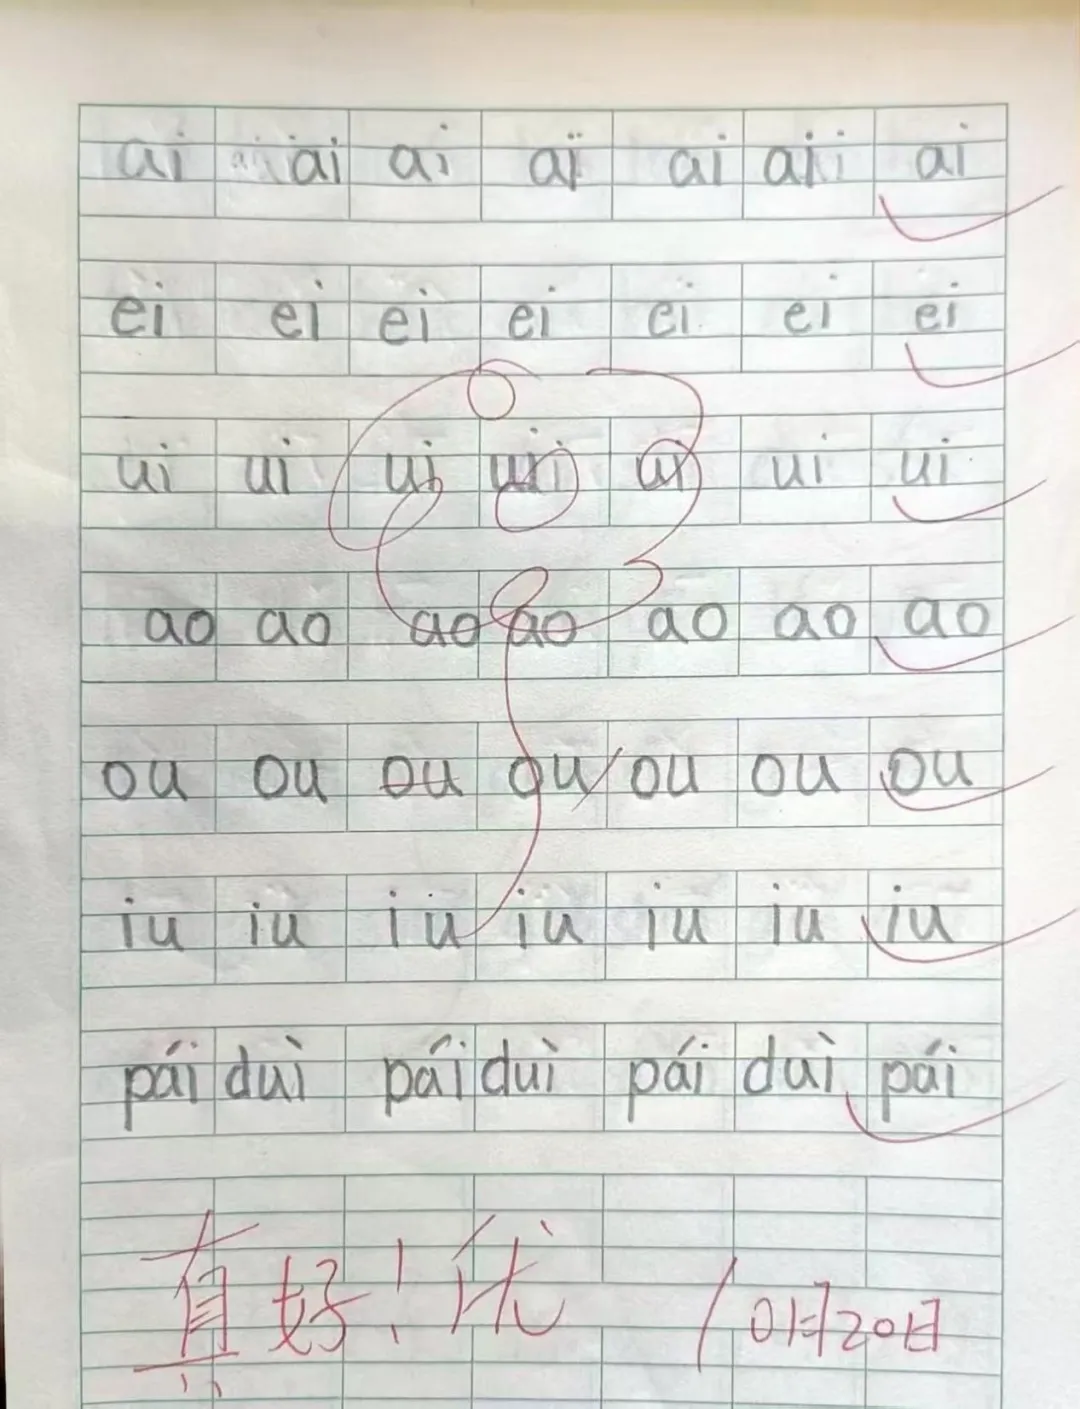 ai ai ai ai ai ai ai
ei ei ei ei ei ei ei
ui ui ui ui ui ui ui
ao ao ao ao ao ao ao
ou ou ou ou ou ou ou
iu iu iu iu iu iu iu
pái duì pái duì pái duì pái
真好！优 10月20日